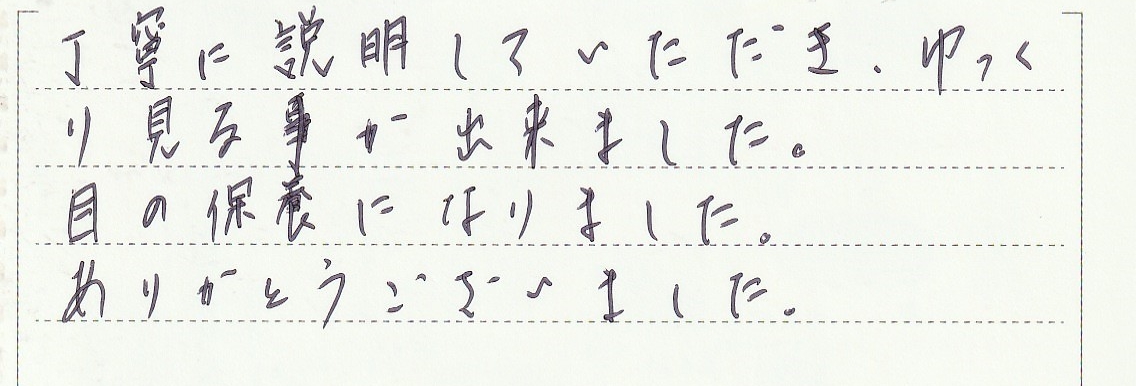 丁寧に説明していただき、ゆっく
り見る事が出来ました。
目の保養になりました。
ありがとうございました。